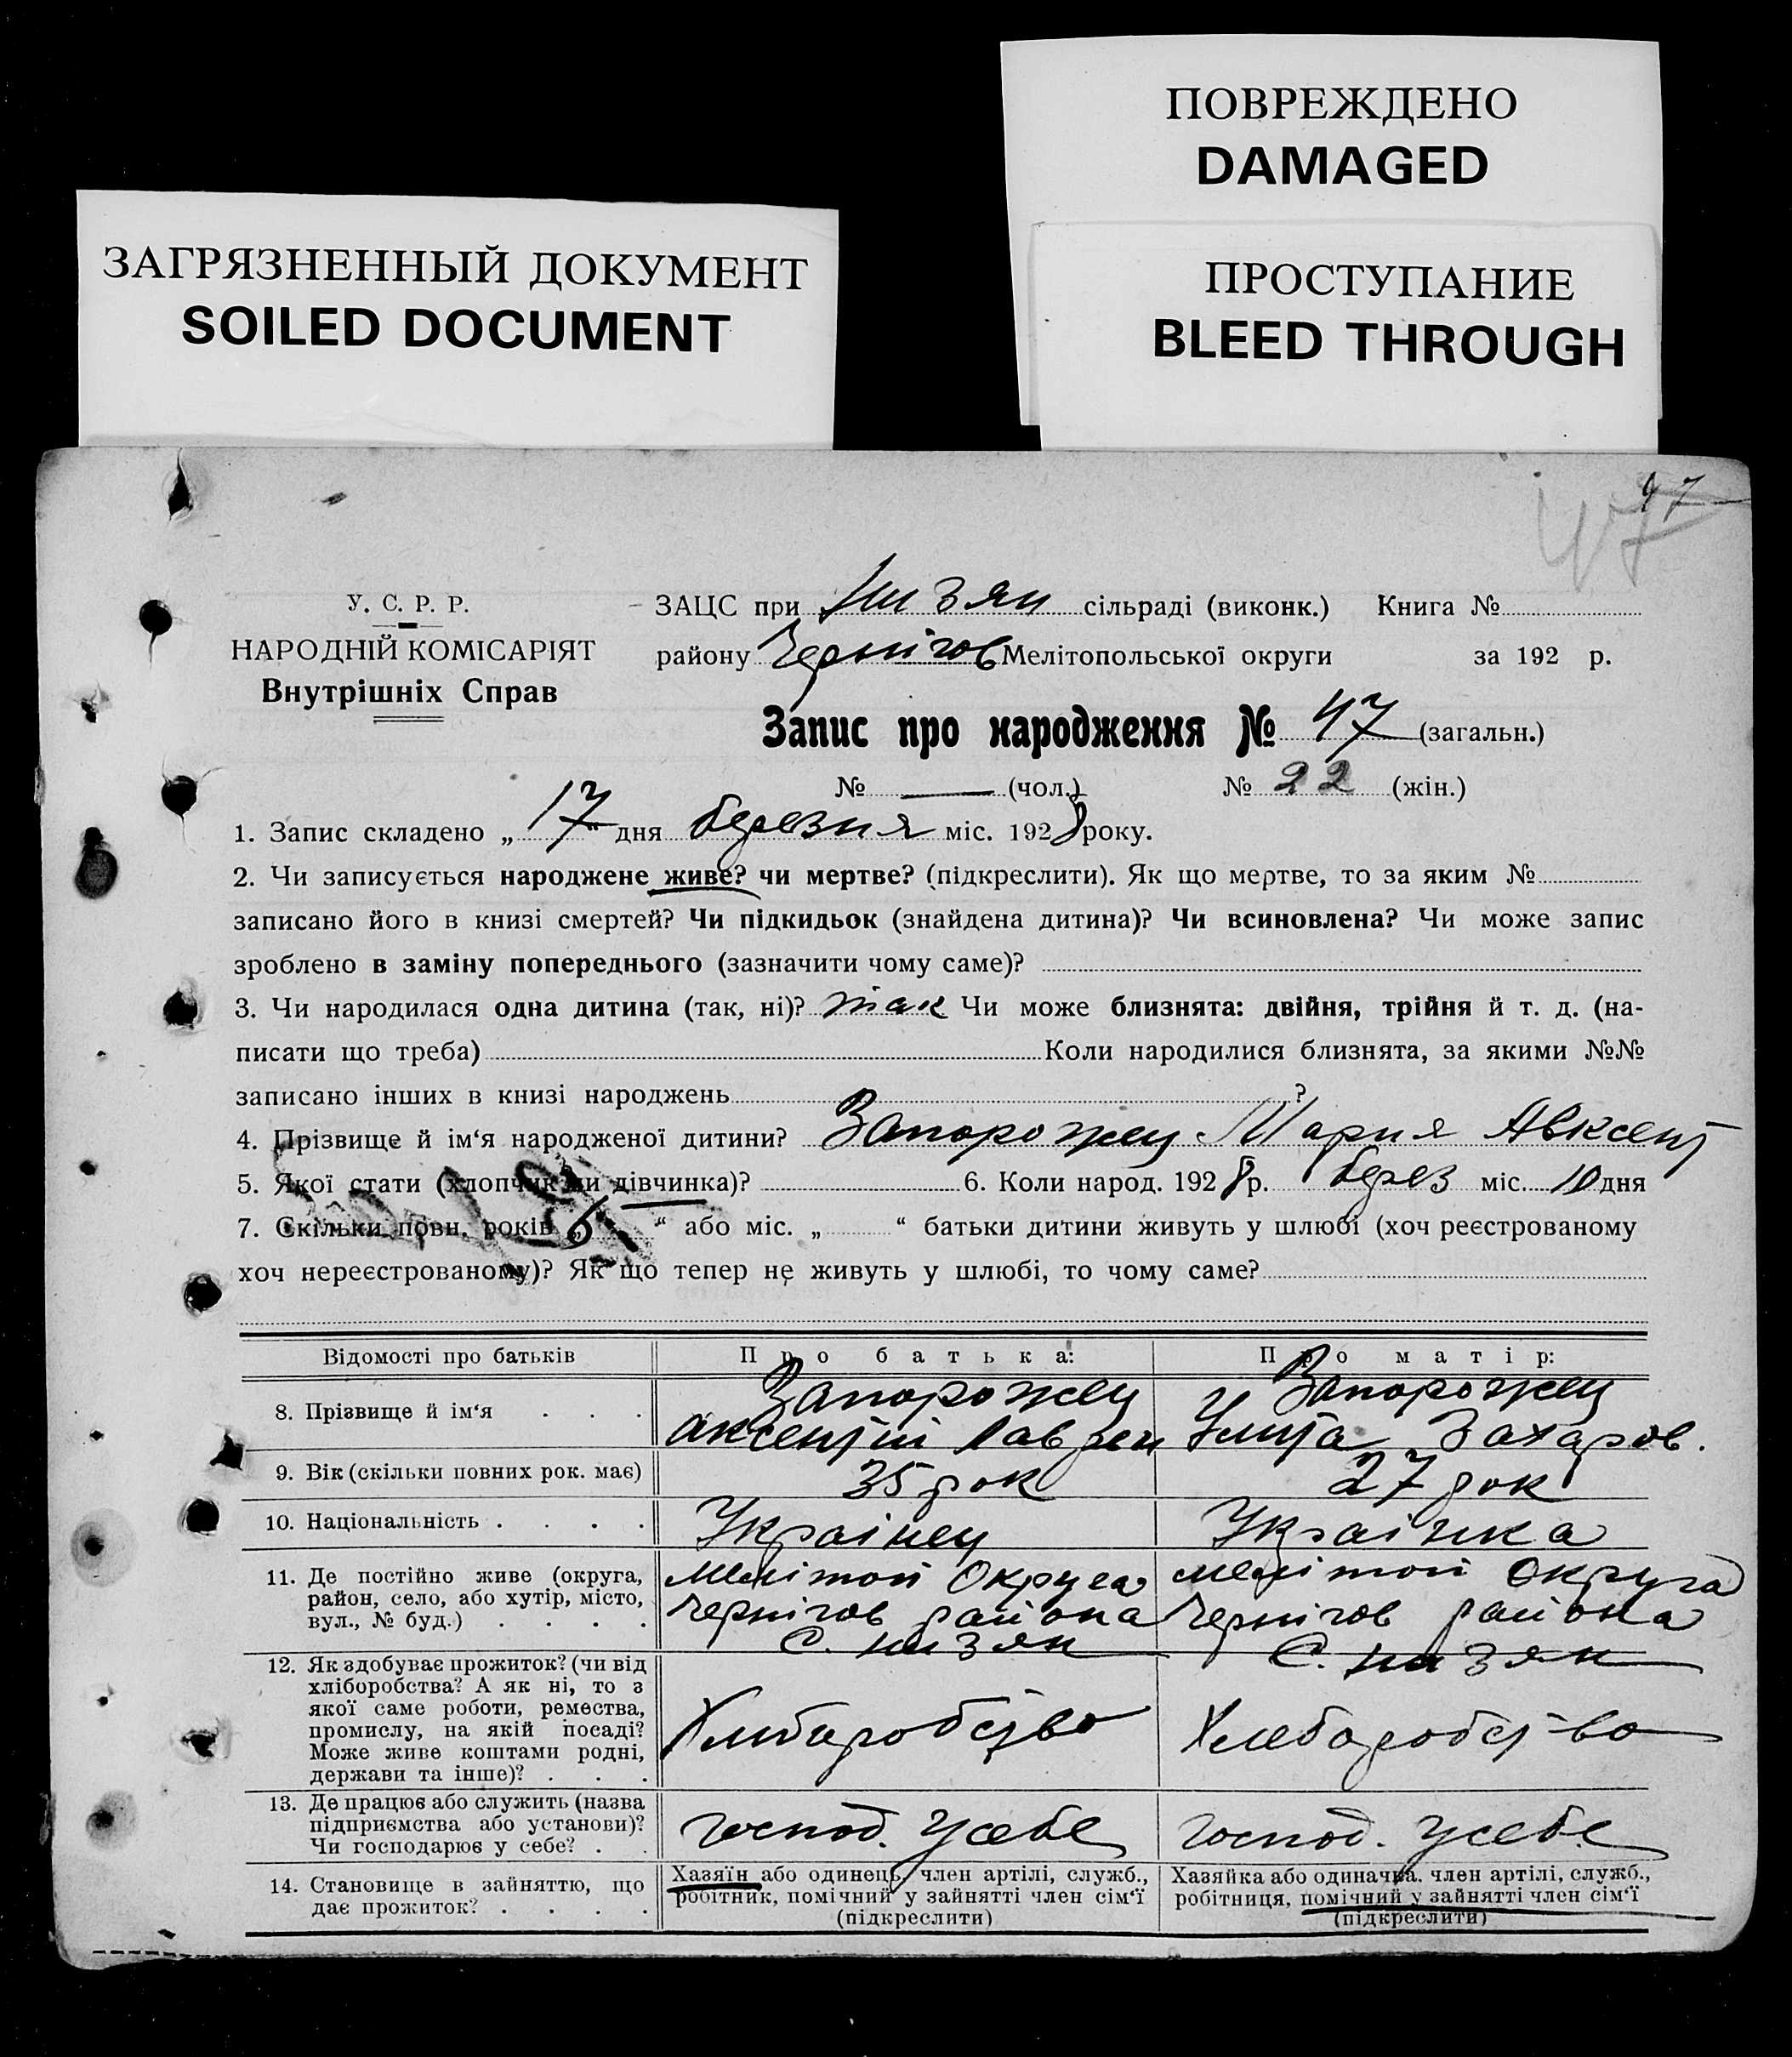 ПОВРЕЖДЕНО
DAMAGED
ЗАГРЯЗНЕННЫЙ ДОКУМЕНТ
SOILED DOCUMENT
ПРОСТУПАНИЕ
BLEED THROUGH
47
47
У. С. Р. Р.
НАРОДНІЙ КОМІСАРІЯТ
Внутрішніх Справ
ЗАЦС при Низян сільраді (виконк.) Книга №
району Чернігов Мелітопольської округи за 192 р.
Запис про народження № 47 (загальн.)
№ — (чол.) № 22 (жін.)
1. Запис складено „ 17 “ дня березня міс. 1928 року.
2. Чи записується народжене живе? чи мертве? (підкреслити). Як що мертве, то за яким №
записано його в книзі смертей? Чи підкидьок (знайдена дитина)? Чи всиновлена? Чи може запис
зроблено в заміну попереднього (зазначити чому саме)?
3. Чи народилася одна дитина (так, ні)? так Чи може близнята: двійня, трійня й т. д. (на-
писати що треба) Коли народилися близнята, за якими №№
записано інших в книзі народжень ?
4. Прізвище й ім‘я народженої дитини? Запорожец Мария Авксент
5. Якої стати (хлопчик чи дівчинка)? 6. Коли народ. 1928 р. берез міс. 10 дня
7. Скільки повн. років „ 6 “ або міс. „ “ батьки дитини живуть у шлюбі (хоч реєстрованому
хоч нереєстрованому)? Як що тепер не живуть у шлюбі, то чому саме?
Відомості про батьків
Про батька:
Про матір:
8. Прізвище й ім‘я . . .
Запорожец
аксентий Лаврен
Запорожец
Улита Захаров.
9. Вік (скільки повних рок. має)
35 рок
27 рок
10. Національність . . . .
Українец
Українка
11. Де постійно живе (округа,
район, село, або хутір, місто,
вул., № буд.) . . . .
Мелітоп Округа
Чернігов района
С. низян
Мелітоп Округа
Чернігов района
С. низян
12. Як здобуває прожиток? (чи від
хліборобства? А як ні, то з
якої саме роботи, ремества,
промислу, на якій посаді?
Може живе коштами родні,
держави та інше)? . . .
Хлибаробство
Хлебаробство
13. Де працює або служить (назва
підприємства або установи)?
Чи господарює у себе? . .
господ. усебе
господ. усебе
14. Становище в зайняттю, що
дає прожиток? . . . .
Хазяїн або одинець, член артілі, служб.,
робітник, помічний у зайнятті член сім‘ї
(підкреслити)
Хазяйка або одиначка. член артілі, служб.,
робітниця, помічний у зайнятті член сім‘ї
(підкреслити)